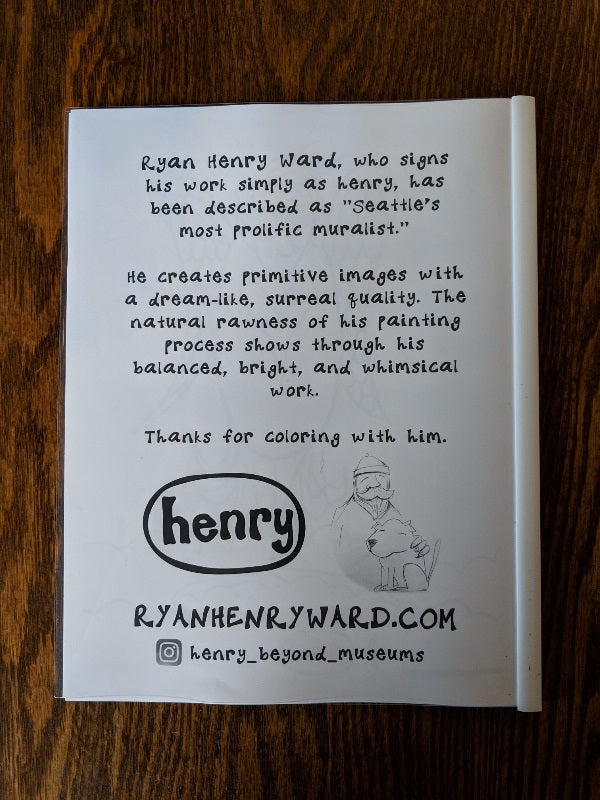 Ryan Henry Ward, who signs
his work simply as henry, has
been described as "Seattle's
most prolific muralist."
He creates primitive images with
a dream-like, surreal quality. The
natural rawness of his painting
process shows through his
balanced, bright, and whimsical
work.
Thanks for coloring with him.
henry
RYANHENRYWARD.COM
henry_beyond_museums